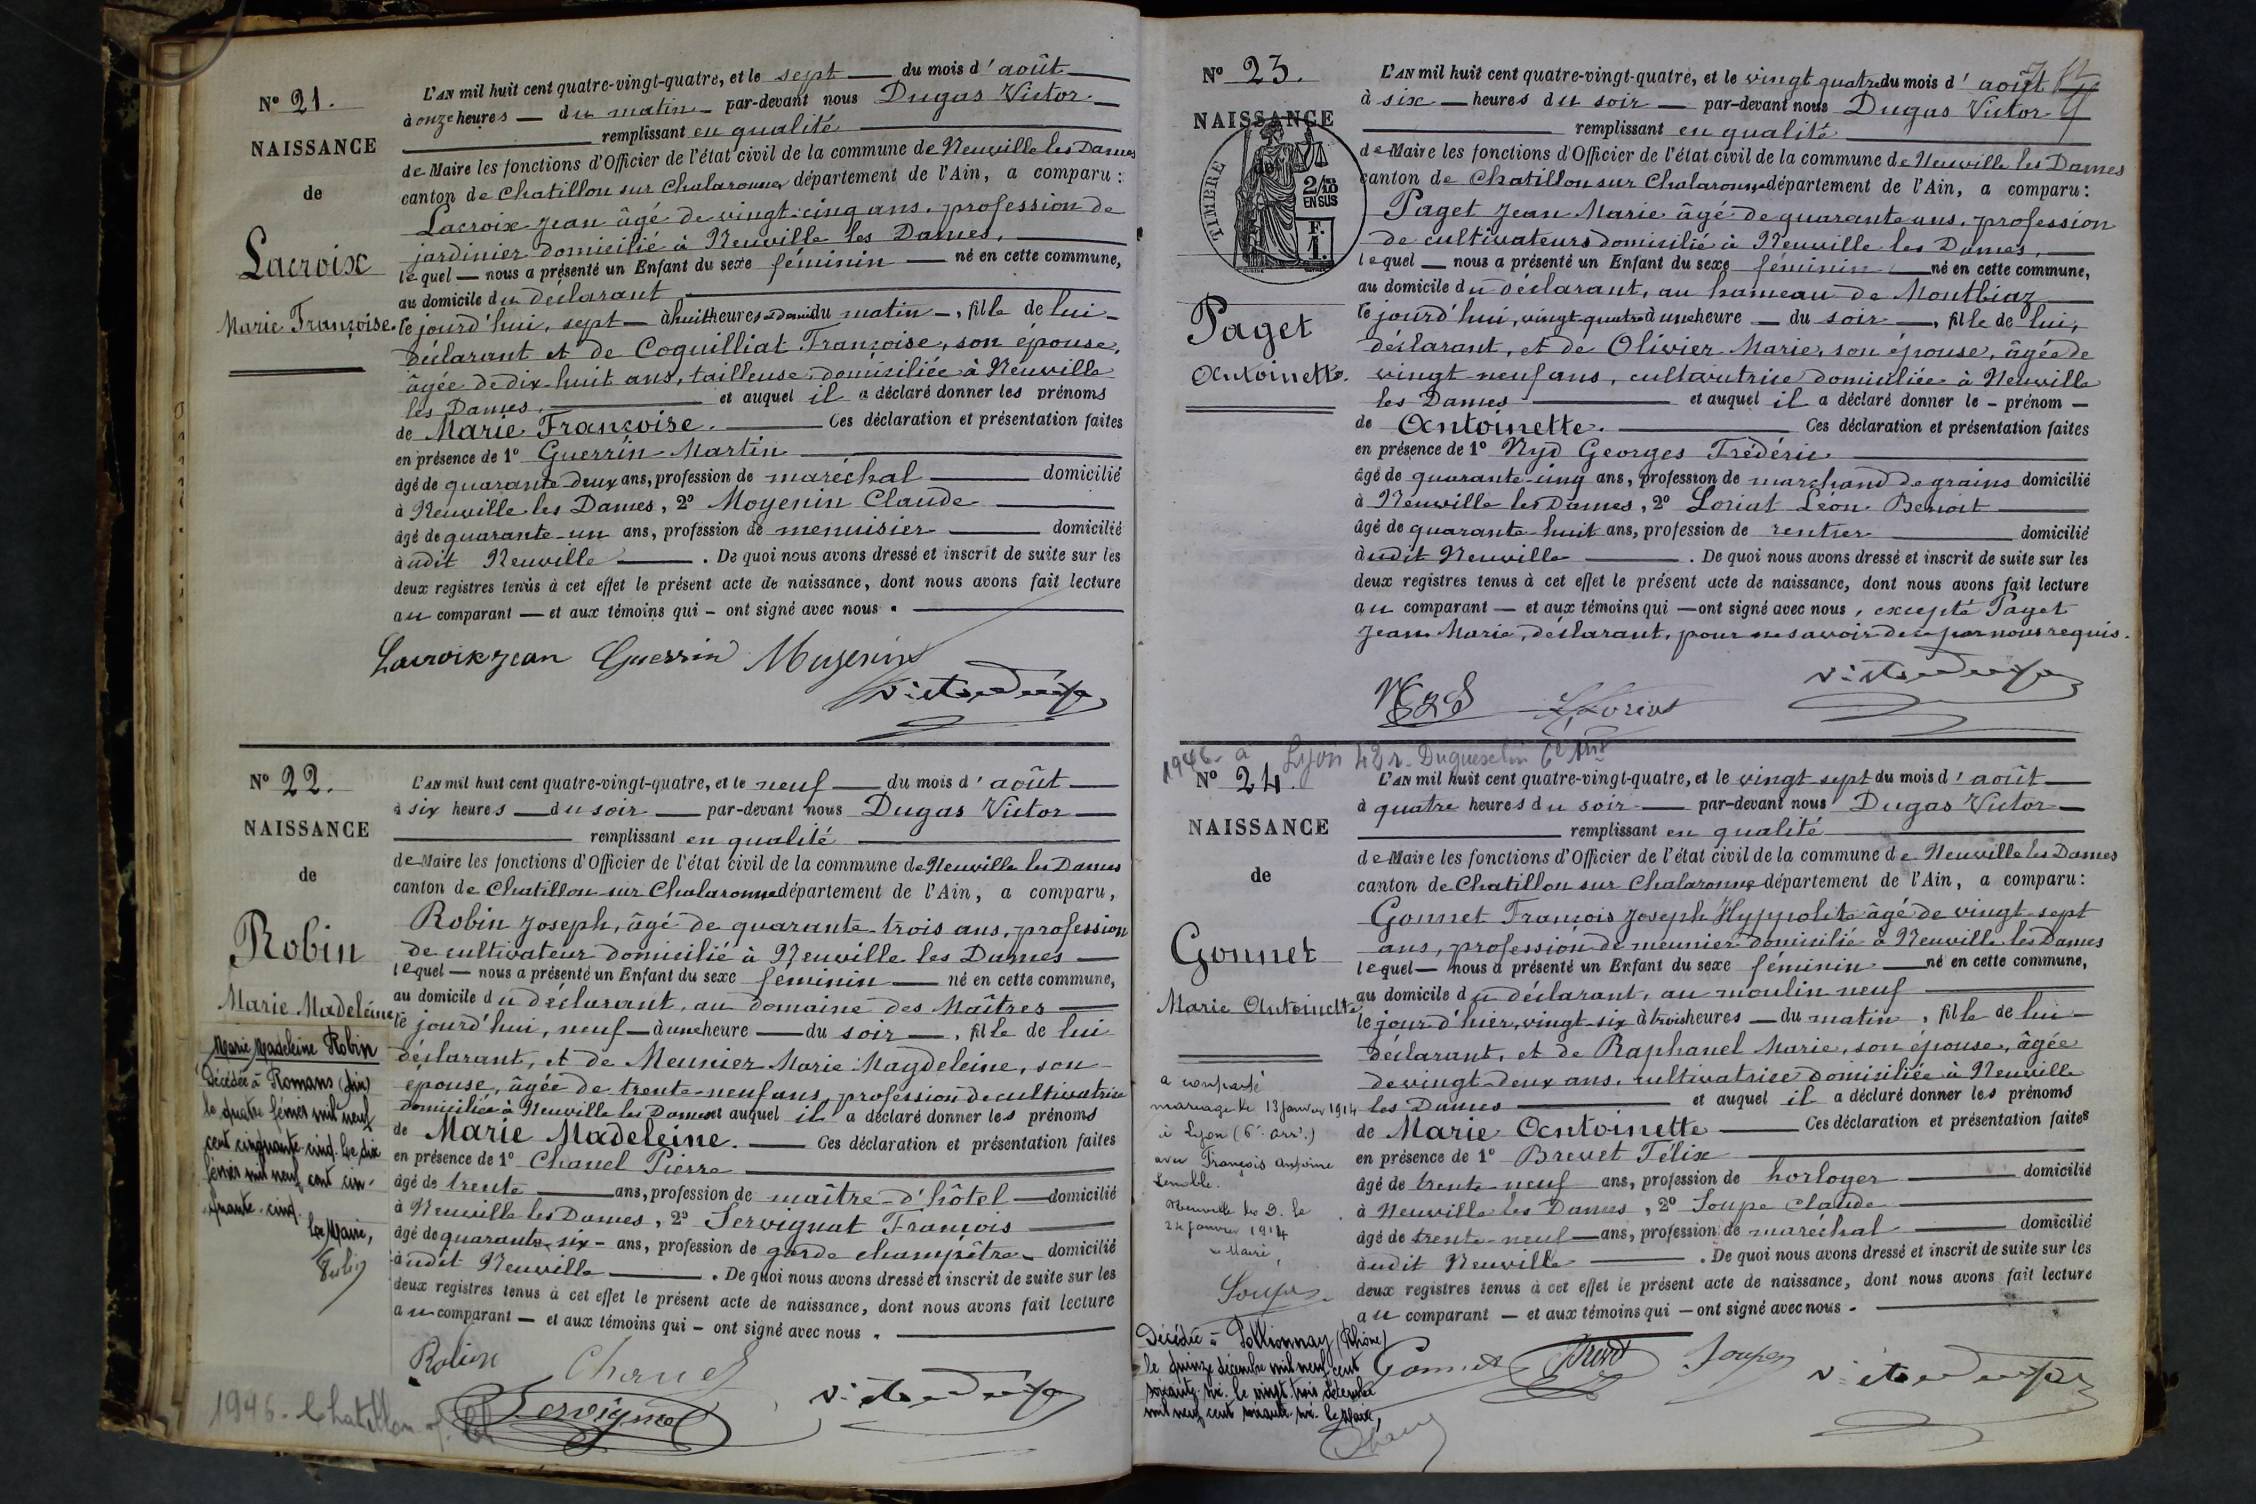 N° 21.
NAISSANCE
de
Lacroix
Marie Françoise.
L'AN mil huit cent quatre-vingt-quatre, et le sept du mois d'août
à onze heures du matin par-devant nous Dugas Victor
remplissant en qualité
de Maire les fonctions d'Officier de l'état civil de la commune de Neuville les Dames
canton de Chatillon sur Chalaronne département de l'Ain, a comparu :
Lacroix Jean âgé de vingt-cinq ans, profession de
jardinier domicilié à Neuville les Dames,
lequel — nous a présenté un Enfant du sexe féminin — né en cette commune,
au domicile du déclarant
le jourd'hui, sept — à huit heures du matin —, fille de lui
déclarant et de Coquilliat Françoise, son épouse,
âgée de dix-huit ans, tailleuse, domiciliée à Neuville
les Dames, et auquel il a déclaré donner les prénoms
de Marie Françoise. Ces déclaration et présentation faites
en présence de 1° Guerrin Martin
âgé de quarante deux ans, profession de maréchal domicilié
à Neuville les Dames, 2° Moyenin Claude
âgé de quarante-un ans, profession de menuisier domicilié
audit Neuville . De quoi nous avons dressé et inscrit de suite sur les
deux registres tenus à cet effet le présent acte de naissance, dont nous avons fait lecture
au comparant — et aux témoins qui — ont signé avec nous.
Lacroix Jean Guerrin Moyenin
Victor Dugas
N° 22.
NAISSANCE
de
Robin
Marie Madeleine
Marie Madeleine Robin
Décédée à Romans (Ain)
le quatre février mil neuf
cent cinquante-cinq. Le dix
février mil neuf cent cin-
quante-cinq.
Le Maire,
L'AN mil huit cent quatre-vingt-quatre, et le neuf du mois d'août
à six heures du soir par-devant nous Dugas Victor
remplissant en qualité
de Maire les fonctions d'Officier de l'état civil de la commune de Neuville les Dames
canton de Chatillon sur Chalaronne département de l'Ain, a comparu,
Robin Joseph, âgé de quarante-trois ans, profession
de cultivateur domicilié à Neuville les Dames
lequel — nous a présenté un Enfant du sexe féminin né en cette commune,
au domicile du déclarant, au domaine des Maîtres
le jourd'hui, neuf — à une heure — du soir —, fille de lui
déclarant, et de Meunier Marie Magdeleine, son
épouse, âgée de trente-neuf ans, profession de cultivatrice
domiciliée à Neuville les Dames et auquel il a déclaré donner les prénoms
de Marie Madeleine. Ces déclaration et présentation faites
en présence de 1° Chanel Pierre
âgé de trente ans, profession de maître-d'hôtel domicilié
à Neuville les Dames, 2° Servignat François
âgé de quarante-six ans, profession de garde champêtre domicilié
audit Neuville . De quoi nous avons dressé et inscrit de suite sur les
deux registres tenus à cet effet le présent acte de naissance, dont nous avons fait lecture
au comparant — et aux témoins qui — ont signé avec nous.
Robin Chanel
Servignat Victor Dugas
1946. Chatillon s/
N° 23.
NAISSANCE
de
TIMBRE
2/10
EN SUS
F.
1.
Paget
Antoinette.
L'AN mil huit cent quatre-vingt-quatre, et le vingt quatre du mois d'août
à six — heures du soir — par-devant nous Dugas Victor
remplissant en qualité
de Maire les fonctions d'Officier de l'état civil de la commune de Neuville les Dames
canton de Chatillon sur Chalaronne département de l'Ain, a comparu :
Paget Jean Marie âgé de quarante ans, profession
de cultivateurs domicilié à Neuville les Dames,
lequel — nous a présenté un Enfant du sexe féminin né en cette commune,
au domicile du déclarant, au hameau de Montbiaz
le jourd'hui, vingt-quatre à une heure — du soir —, fille de lui,
déclarant, et de Olivier Marie, son épouse, âgée de
vingt-neuf ans, cultivatrice domiciliée à Neuville
les Dames et auquel il a déclaré donner le - prénom -
de Antoinette. Ces déclaration et présentation faites
en présence de 1° Nyd Georges Frédéric
âgé de quarante-cinq ans, profession de marchand de grains domicilié
à Neuville les Dames, 2° Loriat Léon Benoit
âgé de quarante-huit ans, profession de rentier domicilié
audit Neuville . De quoi nous avons dressé et inscrit de suite sur les
deux registres tenus à cet effet le présent acte de naissance, dont nous avons fait lecture
au comparant — et aux témoins qui — ont signé avec nous, excepté Paget
Jean Marie, déclarant, pour ne savoir de ce par nous requis.
L. Loriat Victor Dugas
1946. à Lyon 42 r. Duguesclin 6e Arrt
N° 24.
NAISSANCE
de
Gonnet
Marie Antoinette
a contracté
mariage le 13 janvier 1914
à Lyon (6e arrt.)
avec François Antoine
Neuville les D. le
24 janvier 1914
Le Maire,
Soupe
Décédée à Pollionnay (Rhône)
le quinze décembre mil neuf cent
soixante-six. le vingt trois décembre
mil neuf cent soixante six. Le Maire,
L'AN mil huit cent quatre-vingt-quatre, et le vingt sept du mois d'août
à quatre heures du soir — par-devant nous Dugas Victor
remplissant en qualité
de Maire les fonctions d'Officier de l'état civil de la commune de Neuville les Dames
canton de Chatillon sur Chalaronne département de l'Ain, a comparu :
Gonnet François Joseph Hyppolite âgé de vingt-sept
ans, profession de meunier domicilié à Neuville les Dames
lequel — nous a présenté un Enfant du sexe féminin né en cette commune,
au domicile du déclarant, au moulin neuf
le jour d'hier, vingt-six à trois heures — du matin, fille de lui
déclarant, et de Raphanel Marie, son épouse, âgée
de vingt-deux ans, cultivatrice domiciliée à Neuville
les Dames et auquel il a déclaré donner les prénoms
de Marie Antoinette Ces déclaration et présentation faites
en présence de 1° Brevet Félix
âgé de trente-neuf ans, profession de horloger domicilié
à Neuville les Dames, 2° Soupe Claude
âgé de trente-neuf ans, profession de maréchal domicilié
audit Neuville . De quoi nous avons dressé et inscrit de suite sur les
deux registres tenus à cet effet le présent acte de naissance, dont nous avons fait lecture
au comparant — et aux témoins qui — ont signé avec nous.
Gonnet Brevet Soupe Victor Dugas